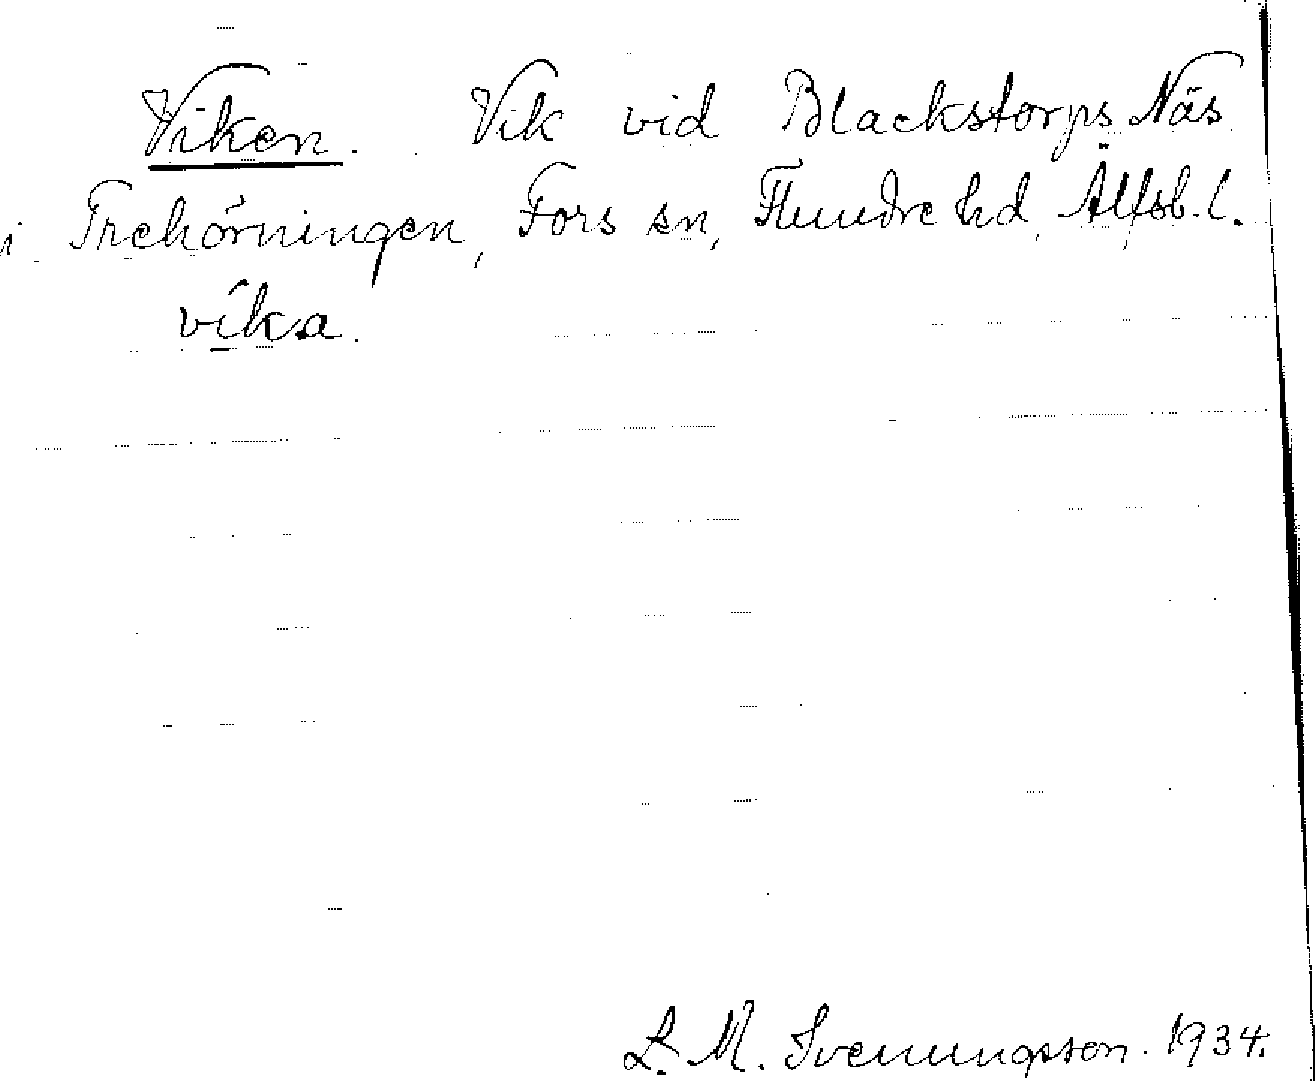 Viken. Vik vid Blackstorps Näs
i Trehörningen, Fors sn, Flundre hd, Älfsb. l.
víka.
L. M. Svenungsson. 1934.